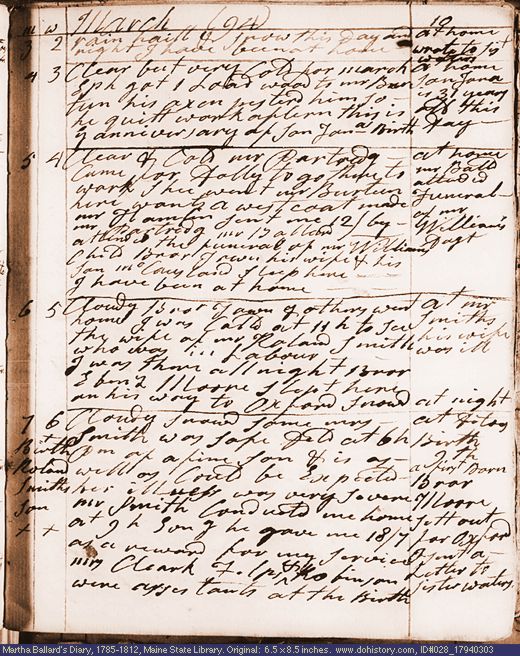 m w March (94) 10
3 2 rain hail & snow this day and at home
night I have been at home wrote to
4 3 Clear but very Cold for march at home
Eph got 1 Load wood to mr Bur Son Jona
tun his oxen jesterd him so is 31 years
he quitt work aftern this is old this
ye anniversary of Son Jona Birth Day
5 4 Clear & Cold mr Partridg at home
Came for Dolly to go there to mr Ballard
work Shee went mr Burtun attended
here wants a westcoat made Funeral
mr Hamlin sent me 12/ by of mr
mr Partridg mr Ballard Williams
attend the funeral of mr William Dagt
Child Bror his wife & his
son
I have been at home
6 5 Cloudy Bror & others went at mr
home I was Calld at 11 h to See Smiths
the wife of mr Roland Smith his wife
who was in Labour was ill
I was there all night Bror
Ebenr Moore Slept here
on his way to Oxford Snowd at night
7 6 Cloudy Snowd some mrs at Ditos
+ Smith was safe Dld at 6 h Birth
Birth Pm of a fine son & is as 9th
Roland well as Could be Expected a first Born
Smiths her illness was very severe Bror
son mr Smith Conducted me home Moore
+ + at 9 h Evng he gave me 18/ sett out
as a reward for my service for Oxford
mrs Cleark & Robinson I sent a
were assistants at the Birth Letter to
Sister waters
Martha Ballard's Diary, 1785-1812, Maine State Library. Original: 6.5 x 8.5 inches. www.dohistory.com, ID#028_17940303